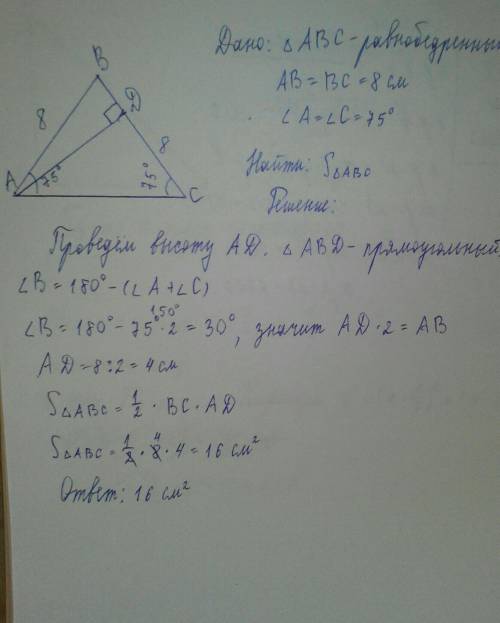 Дано: △ABC-равнобедренный
AB=BC=8 см
∠A=∠C=75°
Найти: S△ABC
Решение:
B
D
8
8
A
75°
75°
C
Проведём высоту AD. △ABD-прямоугольный,
∠B=180°-(∠A+∠C)
150°
∠B=180°-75°·2=30°, значит AD·2=AB
AD=8:2=4см
S△ABC=1/2·BC·AD
4
S△ABC=1/2·8·4=16 см²
Ответ: 16 см²